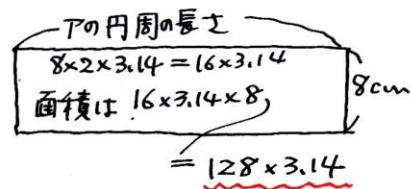 アの円周の長さ
8×2×3.14=16×3.14
面積は 16×3.14×8
8cm
=128×3.14